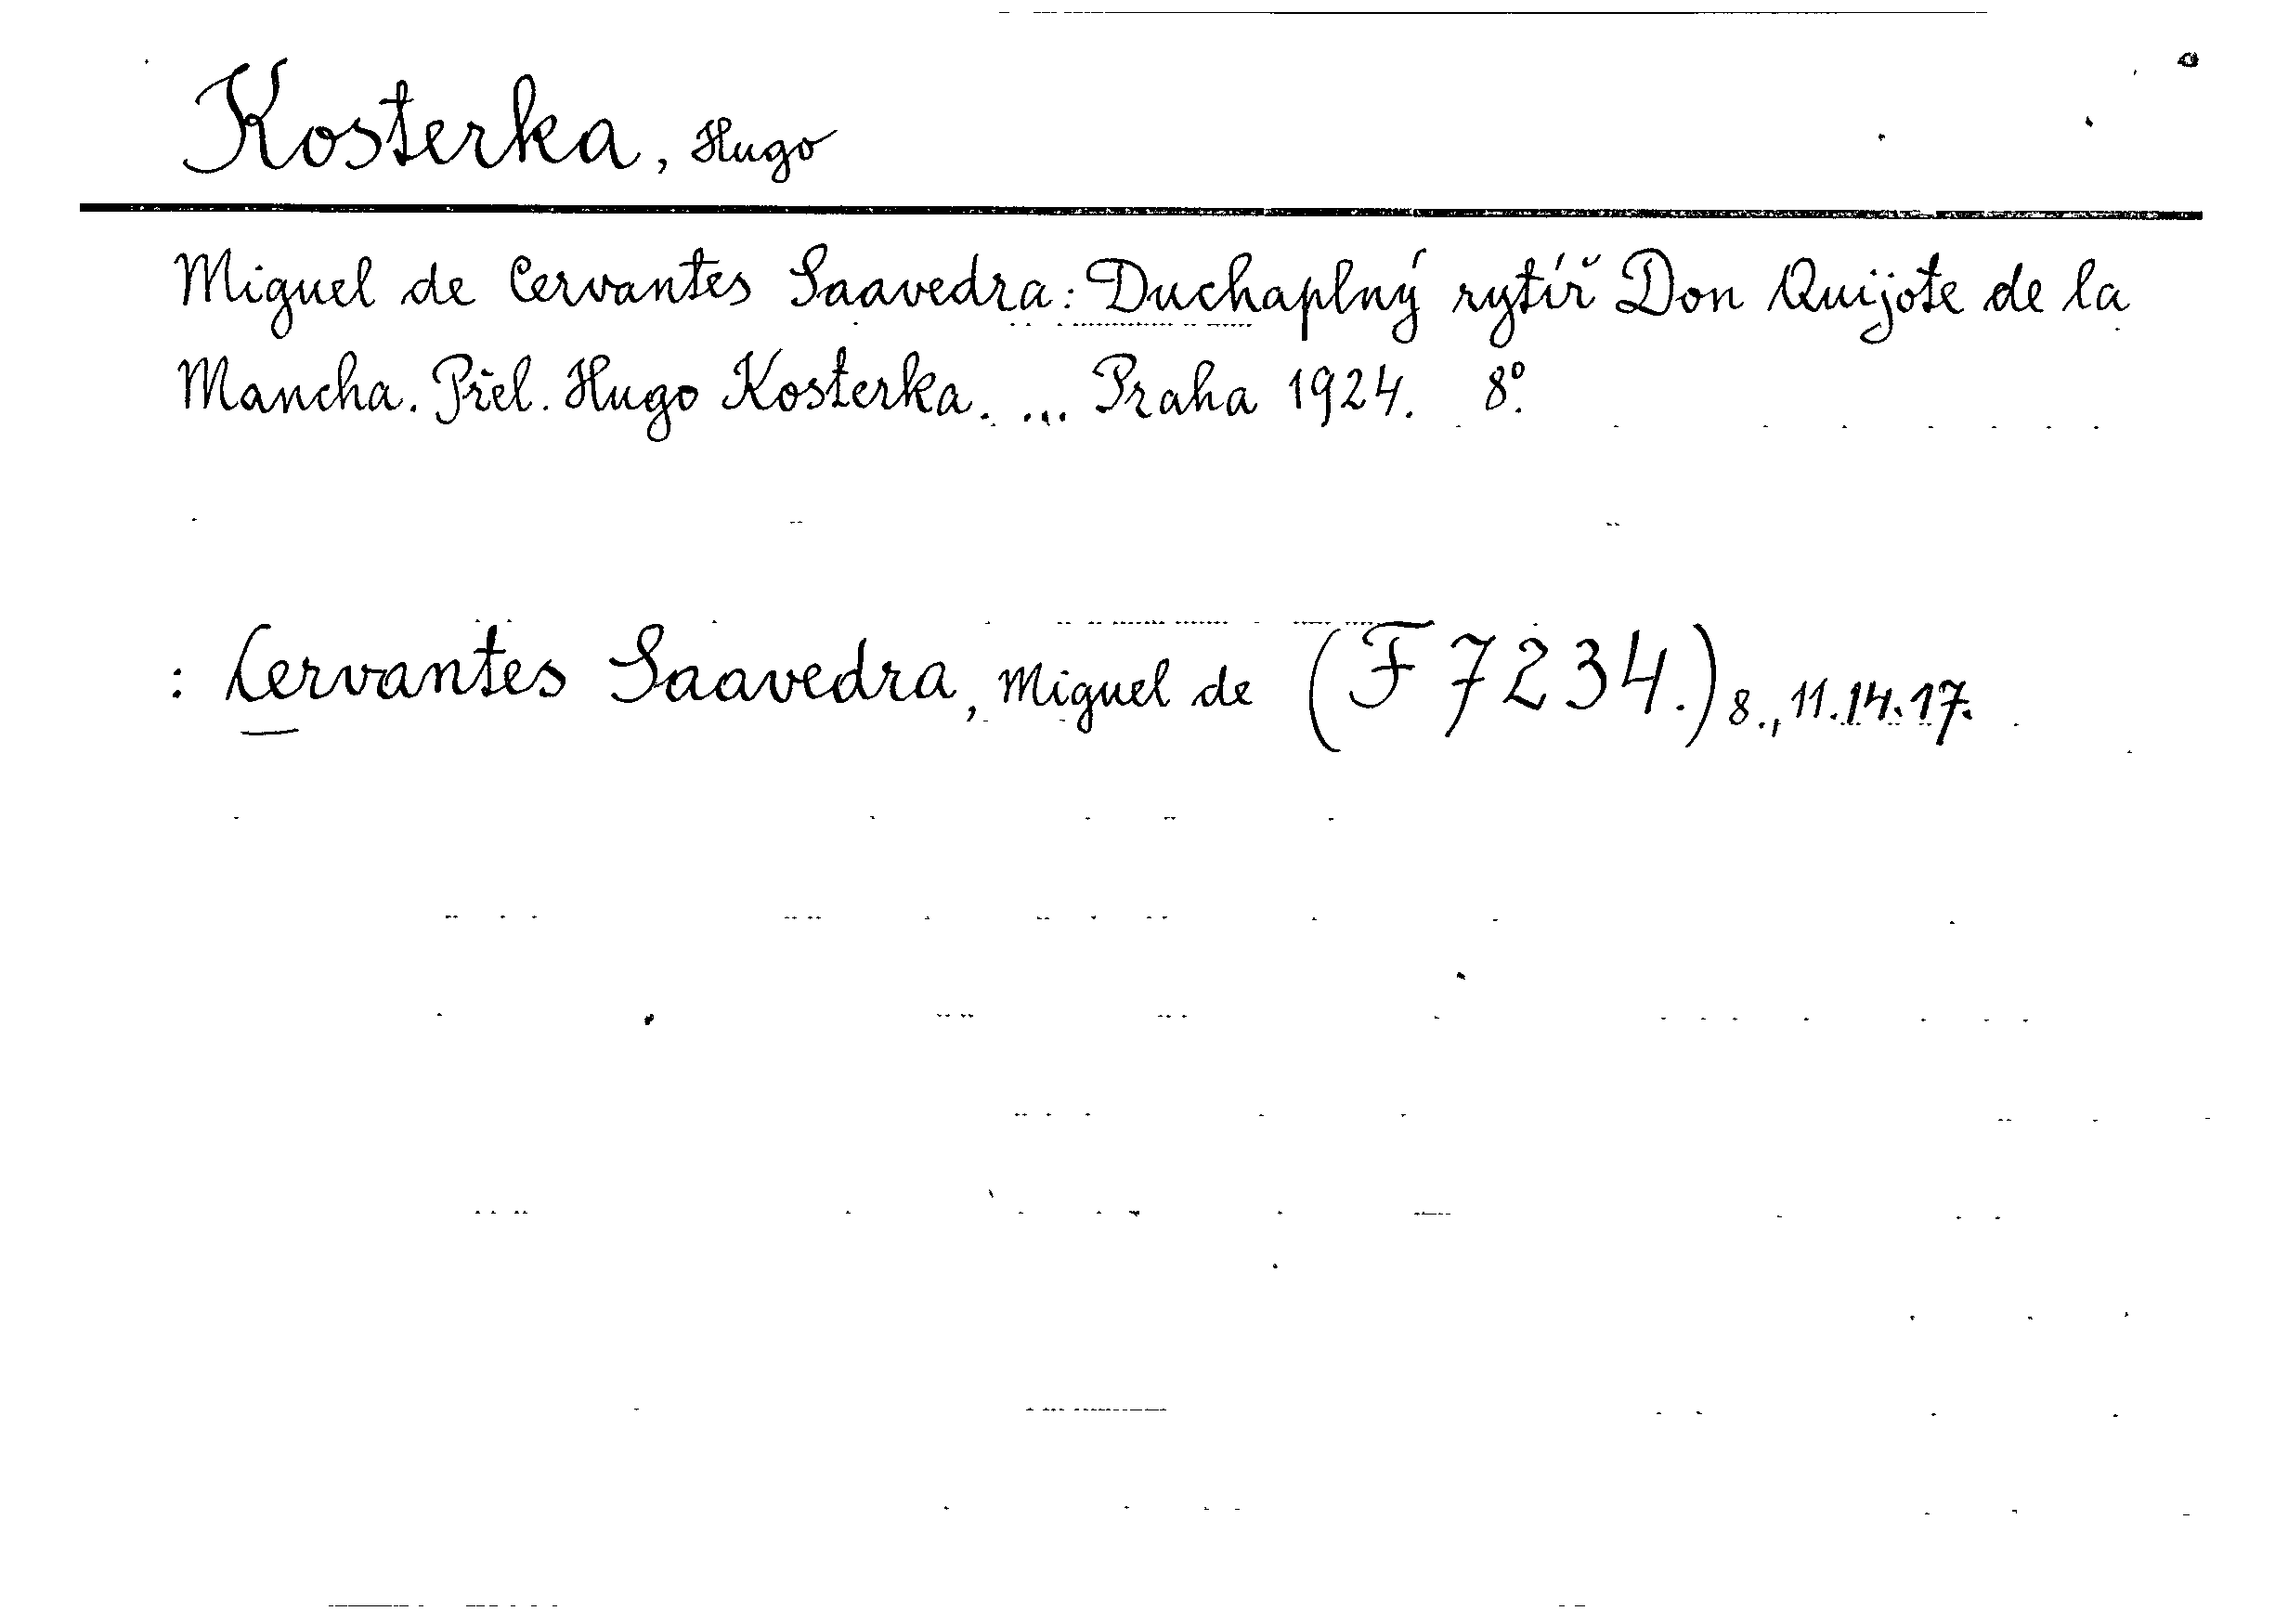 Kosterka, Hugo
Miguel de Cervantes Saavedra: Duchaplný rytíř Don Quijote de la
Mancha. Přel. Hugo Kosterka. ... Praha 1924. 8°.
: Cervantes Saavedra, Miguel de (F 7234.) 8., 11.14.17.